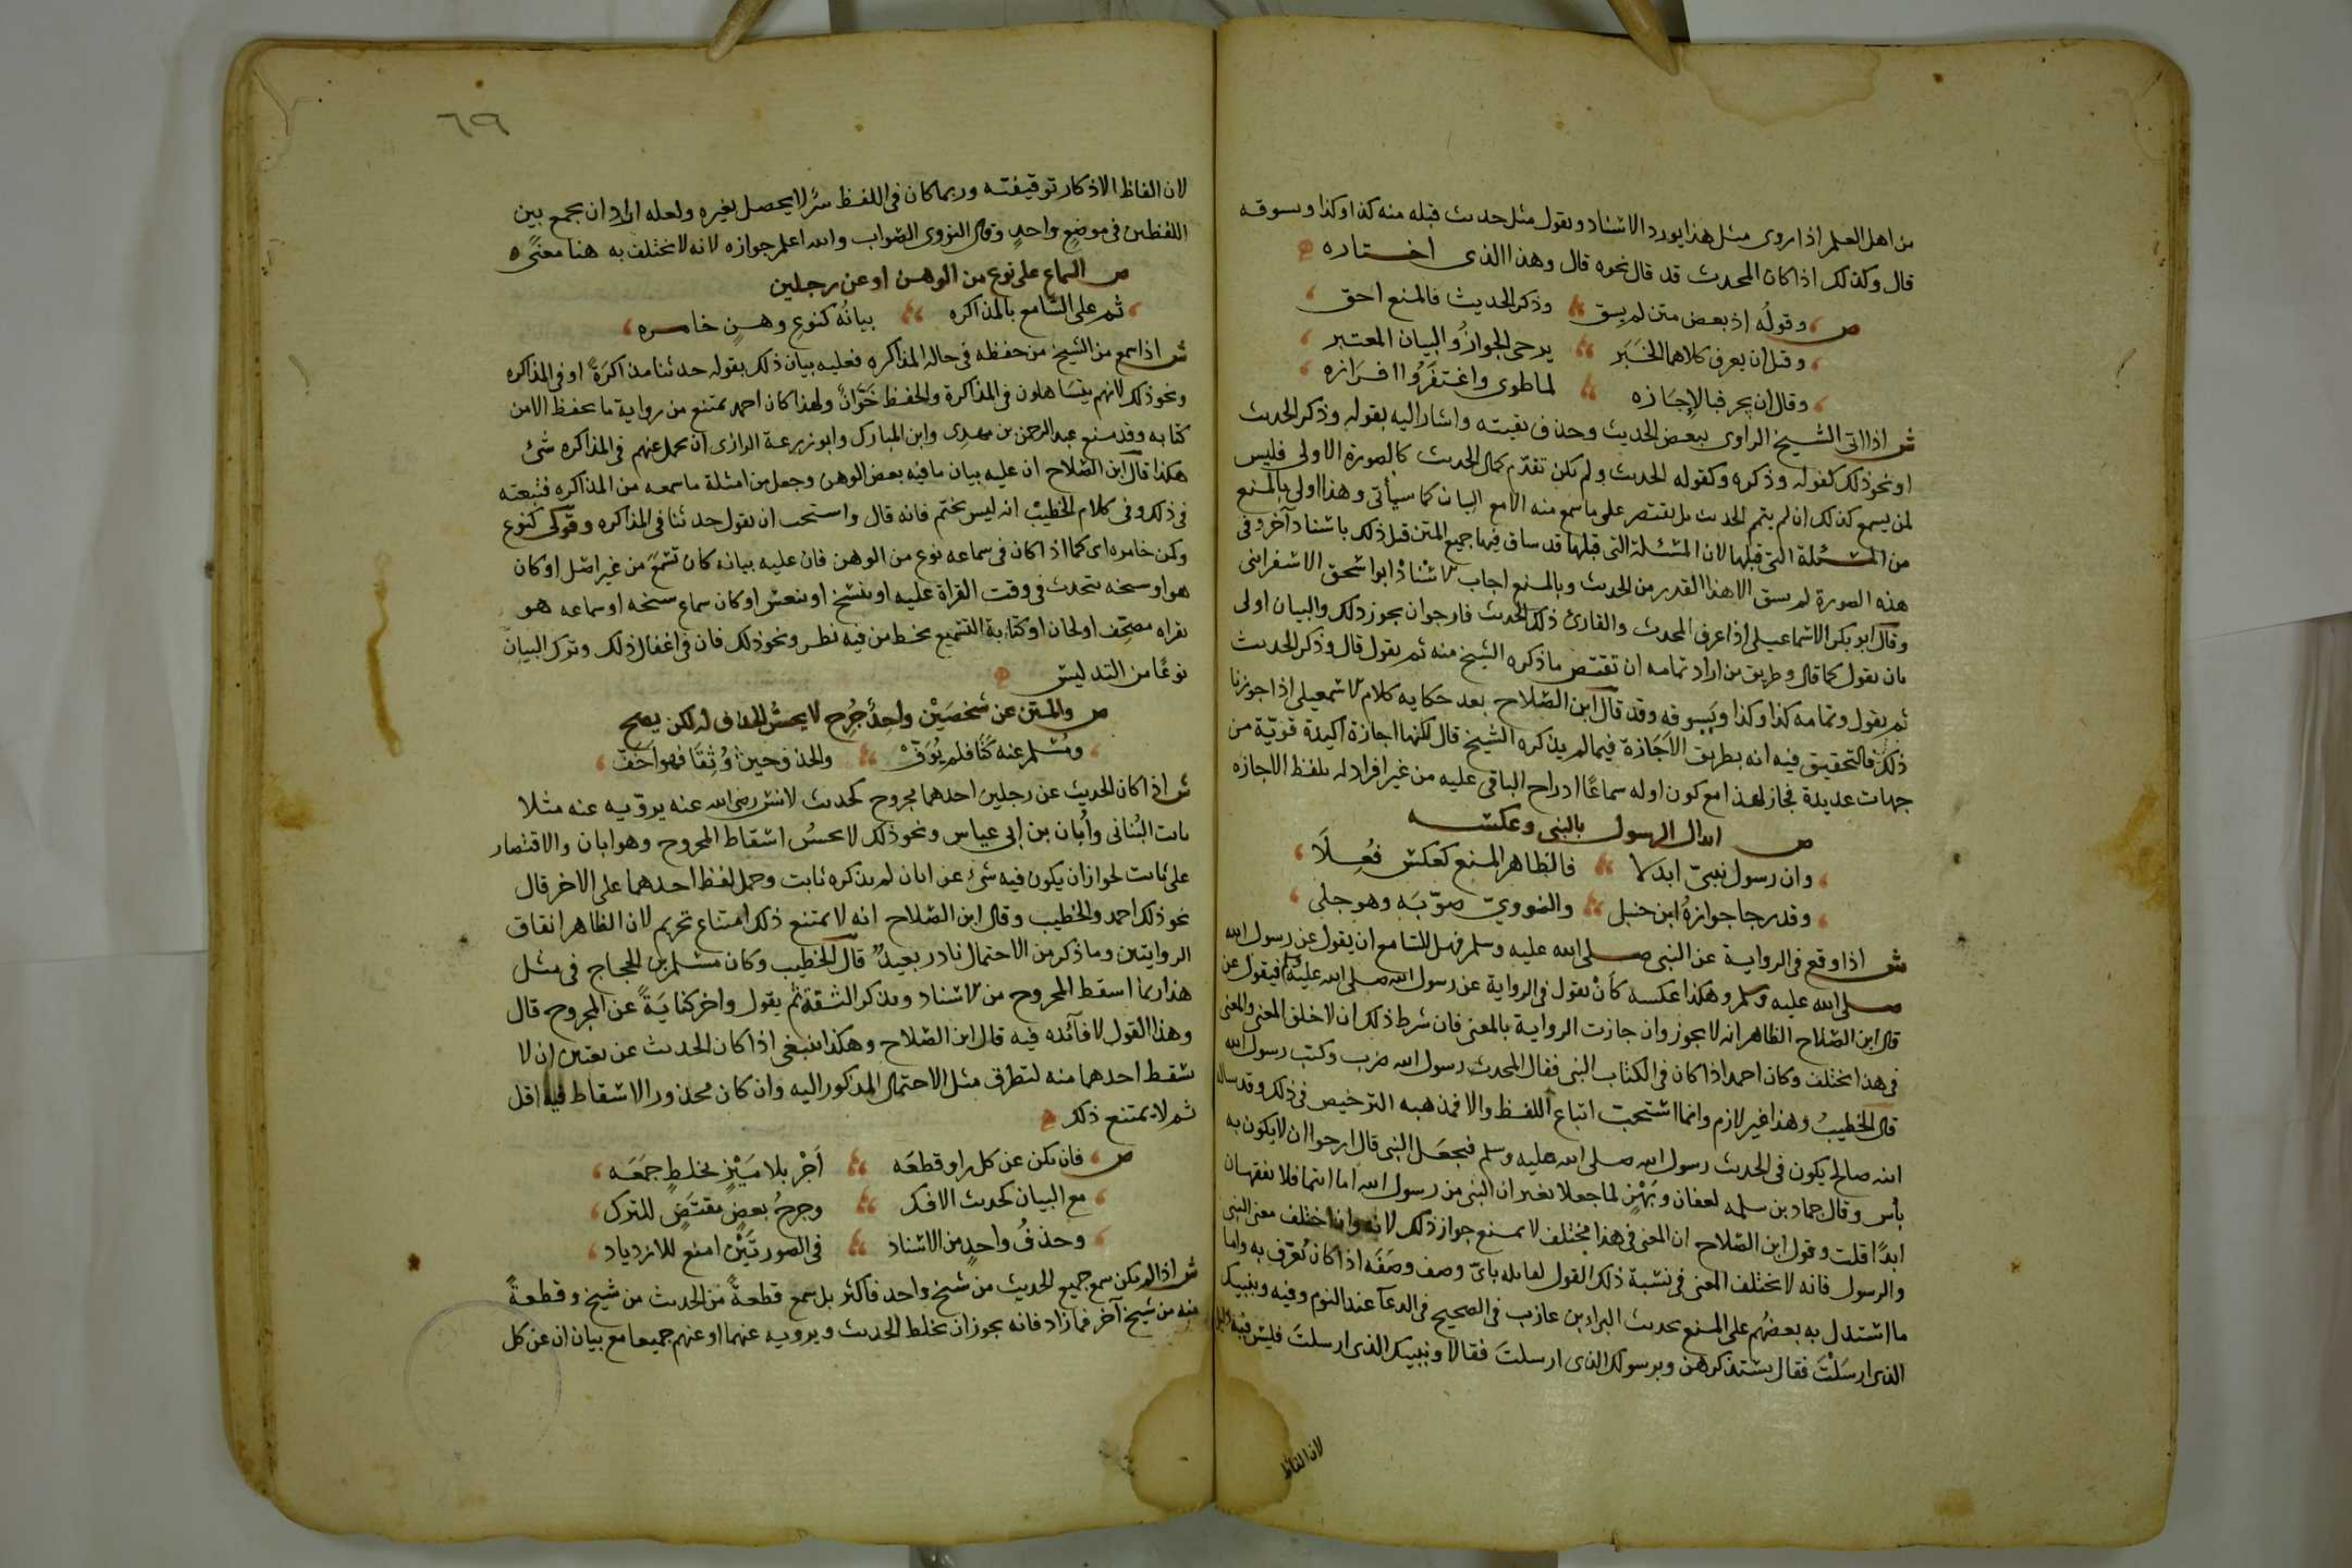 من اهل العلم اذا روى مثل هذا يورد الاسناد ويقول مثل حديث قبله متنه كذا وكذا ويسوقه
قال وكذلك اذا كان المحدث قد قال نحوه قال وهذا الذى اختاره
ص وقوله اذ بعض متن لم يسق وذكر الحديث فالمنع احق
وقيل ان يعرف كلاهما الخبر يرجى الجواز والبيان المعتبر
وقال ان يجز فبالاجازه لما طوى واغتفروا افرازه
ش اذا اتى الشيخ الراوى ببعض الحديث وحذف بقيته واشار اليه بقوله وذكر الحديث
او نحو ذلك كقوله وذكره وكقوله الحديث ولم يكن تقدم كمال الحديث كالصورة الاولى فليس
لمن يسمع كذلك ان لم يتمم الحديث بل يقتصر على ما سمع منه الا مع البيان كما سيأتى وهذا اولى بالمنع
من المسئلة التى قبلها لان المسئلة التى قبلها قد ساق فيها جميع المتن قبل ذلك باسناد آخر وفى
هذه الصورة لم يسق الا هذا القدر من الحديث وبالمنع اجاب الاستاذ ابو اسحق الاسفراينى
وقال ابو بكر الاسماعيلى اذا عرف المحدث والقارئ ذلك الحديث فارجو ان يجوز ذلك والبيان اولى
بان يقول كما قال وطريق من اراد تمامه ان يقتص ما ذكره الشيخ منه ثم يقول قال وذكر الحديث
ثم يقول وتمامه كذا وكذا ويسوقه وقد قال ابن الصلاح بعد حكايه كلام الاسمعيلى اذا جوزنا
ذلك فالتحقيق فيه انه بطريق الاجازة فيما لم يذكره الشيخ قال لكنها اجازة اكيدة قوية من
جهات عديدة فجاز لهذا مع كون اوله سماعا ادراج الباقى عليه من غير افراد له بلفظ الاجازه
ص ابدال الرسول بالنبى وعكسه
وان رسول بنبى ابدلا فالظاهر المنع كعكس فعلا
وقد رجا جوازه ابن حنبل والنووى صوبه وهو جلى
ش اذا وقع فى الرواية عن النبى صلى الله عليه وسلم فهل للسامع ان يقول عن رسول الله
صلى الله عليه وسلم وهكذا عكسه كأن يقول فى الرواية عن رسول الله صلى الله عليه فيقول عن
قال ابن الصلاح الظاهر انه لا يجوز وان جازت الرواية بالمعنى فان شرط ذلك ان لا يختلف المعنى والمعنى
فى هذا مختلف وكان احمد اذا كان فى الكتاب النبى فقال المحدث رسول الله ضرب وكتب رسول الله
قال الخطيب وهذا غير لازم وانما استحب اتباع اللفظ والا فمذهبه الترخيص فى ذلك وقد ساله
ابنه صالح يكون فى الحديث رسول الله صلى الله عليه وسلم فيجعل النبى قال ارجوا ان لا يكون به
بأس وقال حماد بن سلمه لعفان وبهز لما جعلا يغيران النبى من رسول الله اما انتما فلا تفقهان
ابدا قلت وقول ابن الصلاح ان المعنى فى هذا مختلف لا يمنع جواز ذلك لانه وان اختلف معنى النبى
والرسول فانه لا يختلف المعنى فى نسبة ذلك القول لقايله باى وصف وصفه اذا كان يعرف به واما
ما استدل به بعضهم على المنع بحديث البراء بن عازب فى الصحيح فى الدعآ عند النوم وفيه وبنبيك
الذى ارسلت فقال يستذكرهن وبرسولك الذى ارسلت فقال لا وبنبيك الذى ارسلت فليس فيه دليل
لان الفاظ
٦٩
لان الفاظ الاذكار توقيفته وربما كان فى اللفظ سر لا يحصل بغيره ولعله اراد ان يجمع بين
اللفظين فى موضع واحد وقال النووى الصواب والله اعلم جوازه لانه لا يختلف به هنا معنى
ص السماع على نوع من الوهن او عن رجلين
ثم على السامع بالمذاكره بيانه كنوع وهن خامره
ش اذا سمع من الشيخ من حفظه فى حالة المذاكره فعليه بيان ذلك بقوله حدثنا مذاكرة او فى المذاكره
ونحو ذلك لانهم يتساهلون فى المذاكرة والحفظ خوان ولهذا كان احمد يمتنع من رواية ما يحفظ الا من
كتابه وقد منع عبد الرحمن بن مهدى وابن المبارك وابو زرعة الرازى ان يحمل عنهم فى المذاكره شئ
هكذا قال ابن الصلاح ان عليه بيان ما فيه بعض الوهن وجعل من امثلة ما سمعه من المذاكره فتبعته
فى ذلك وفى كلام الخطيب انه ليس بحتم فانه قال واستحب ان يقول حدثنا فى المذاكره وقولى كنوع
وهن خامره اى كما اذا كان فى سماعه نوع من الوهن فان عليه بيانه كان تسمع من غير اصل او كان
هو او سخه يتحدث فى وقت القراة عليه او ينسخ او ينعس او كان سماع سخه او سماعه هو
بقراه مصحف او لحان او كتابة التسميع بخط من فيه نظر ونحو ذلك فان فى اغفال ذلك وترك البيان
نوعا من التدليس
ص والمتن عن شخصين واحد جرح لا يحسن الحذف له لكن يصح
ومسلم عنه كنا فلم يوف والحذف حيث وثقا فهو اخف
ش اذا كان الحديث عن رجلين احدهما مجروح كحديث لانس رضى الله عنه يرويه عنه مثلا
ثابت البنانى وأبان بن ابى عياس ونحو ذلك لا يحسن اسقاط المجروح وهو ابان والاقتصار
على ثابت لجواز ان يكون فيه شئ عن ابان لم يذكره ثابت وحمل لفظ احدهما على الاخر قال
نحو ذلك احمد والخطيب وقال ابن الصلاح انه لا يمتنع ذلك امتناع تحريم لان الظاهر اتفاق
الروايتين وما ذكر من الاحتمال نادر بعيد قال الخطيب وكان مسلم بن الحجاج فى مثل
هذا ربما اسقط المجروح من الاسناد ويذكر الثقة ثم يقول واخر كناية عن المجروح قال
وهذا القول لا فآئده فيه قال ابن الصلاح وهكذا ينبغى اذا كان الحديث عن ثقتين ان لا
يسقط احدهما منه لتطرق مثل الاحتمال المذكور اليه وان كان محذور الاسقاط فيه اقل
ثم لا يمتنع ذلك
ص فان يكن عن كل راو قطعه اجز بلا ميز بخلط جمعه
مع البيان كحديث الافك وجرح بعض مقتض للترك
وحذف واحد من الاسناد فى الصورتين امنع للازدياد
ش اذا لم يكن سمع جميع الحديث من شيخ واحد فاكثر بل سمع قطعة من الحديث من شيخ وقطعة
منه من شيخ آخر فما زاد فانه يجوز ان يخلط الحديث ويرويه عنهما او عنهم جميعا مع بيان ان عن كل